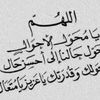 اللهم
يا محول الأحوال
حول حالنا إلى أحسن حال
بحولك وقدرتك يا عزيز يا متعال